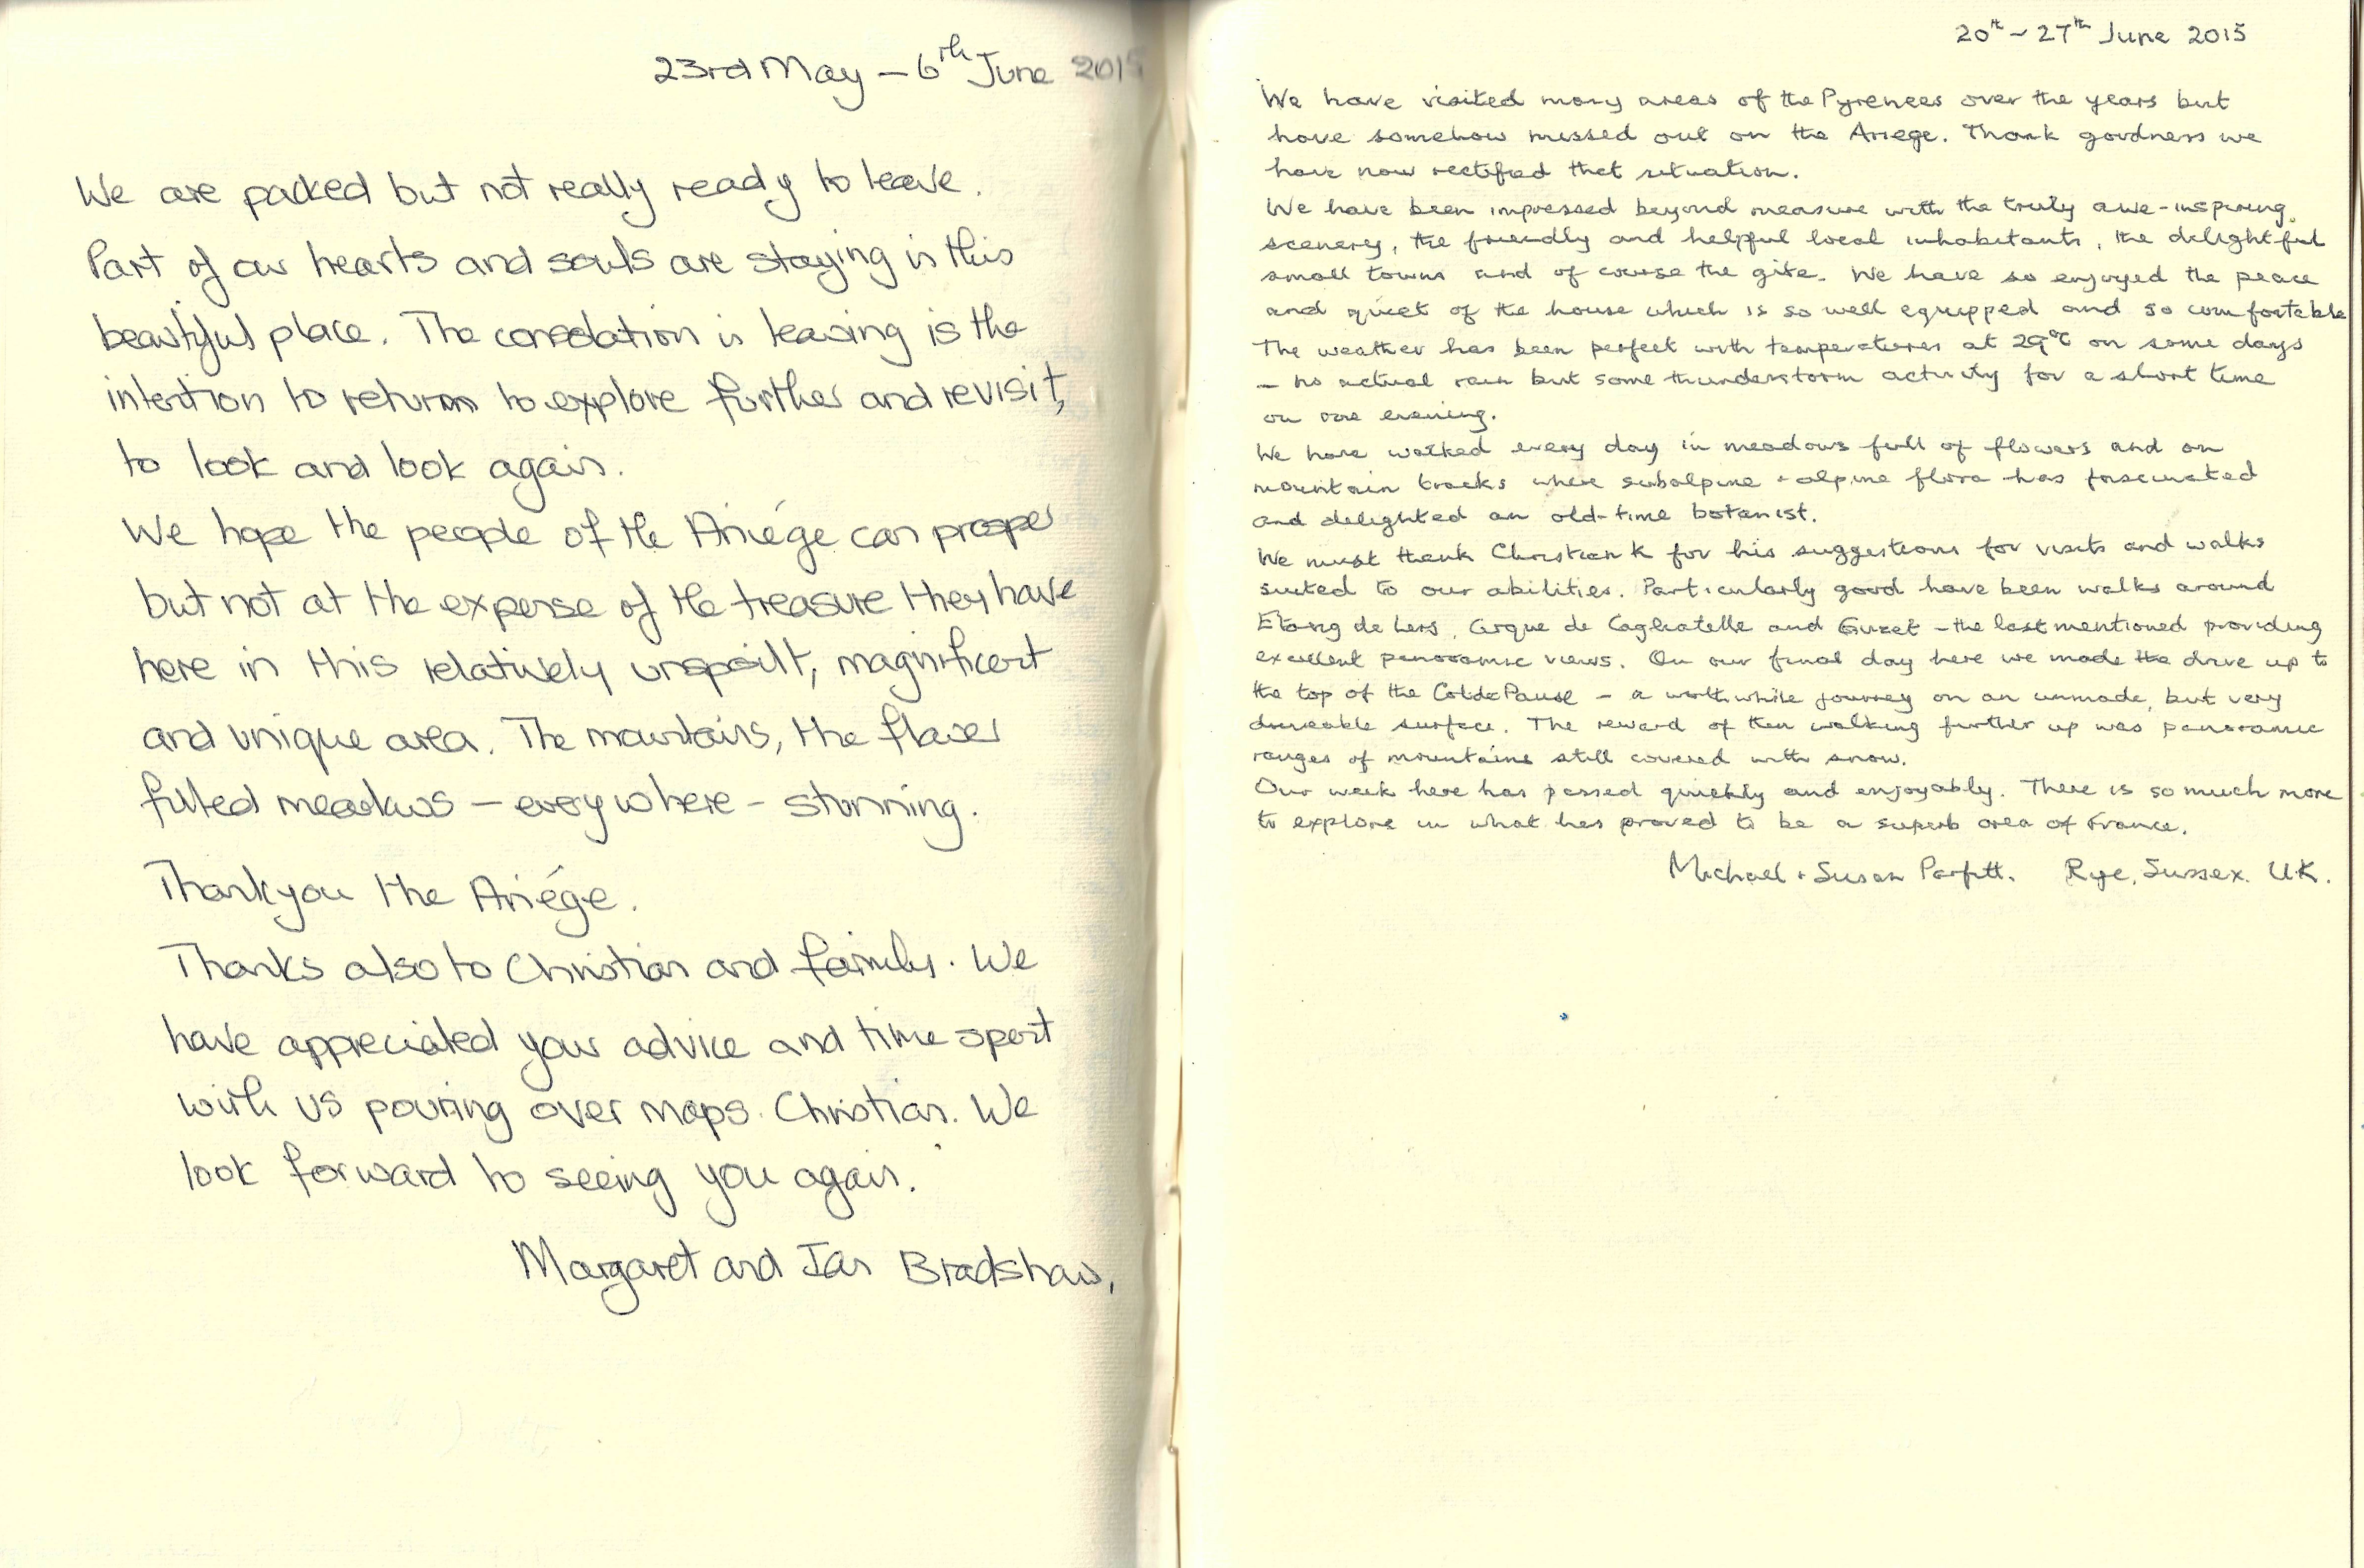 23rd May – 6th June 2015
We are packed but not really ready to leave.
Part of our hearts and souls are staying in this
beautiful place. The consolation in leaving is the
intention to return to explore further and revisit,
to look and look again.
We hope the people of the Ariége can prosper
but not at the expense of the treasure they have
here in this relatively unspoilt, magnificent
and unique area. The mountains, the flower
filled meadows – everywhere – stunning.
Thankyou the Ariége.
Thanks also to Christian and family. We
have appreciated your advice and time spent
with us pouring over maps. Christian. We
look forward to seeing you again.
Margaret and Ian Bradshaw.
20th – 27th June 2015
We have visited many areas of the Pyrenees over the years but
have somehow missed out on the Ariege. Thank goodness we
have now rectified that situation.
We have been impressed beyond measure with the truly awe-inspiring
scenery, the friendly and helpful local inhabitants, the delightful
small towns and of course the gite. We have so enjoyed the peace
and quiet of the house which is so well equipped and so comfortable
The weather has been perfect with temperatures at 29°C on some days
– no actual rain but some thunderstorm activity for a short time
on one evening.
We have walked every day in meadows full of flowers and on
mountain tracks where subalpine + alpine flora has fascinated
and delighted an old-time botanist.
We must thank Christian K for his suggestions for visits and walks
suited to our abilities. Particularly good have been walks around
Etang de Lers, Cirque de Cagliatelle and Guzet – the last mentioned providing
excellent panoramic views. On our final day here we made the drive up to
the top of the Col de Pause – a worthwhile journey on an unmade, but very
driveable surface. The reward of then walking further up was panoramic
ranges of mountains still covered with snow.
Our week here has passed quickly and enjoyably. There is so much more
to explore in what has proved to be a superb area of France.
Michael + Susan Parfitt. Rye, Sussex. UK.